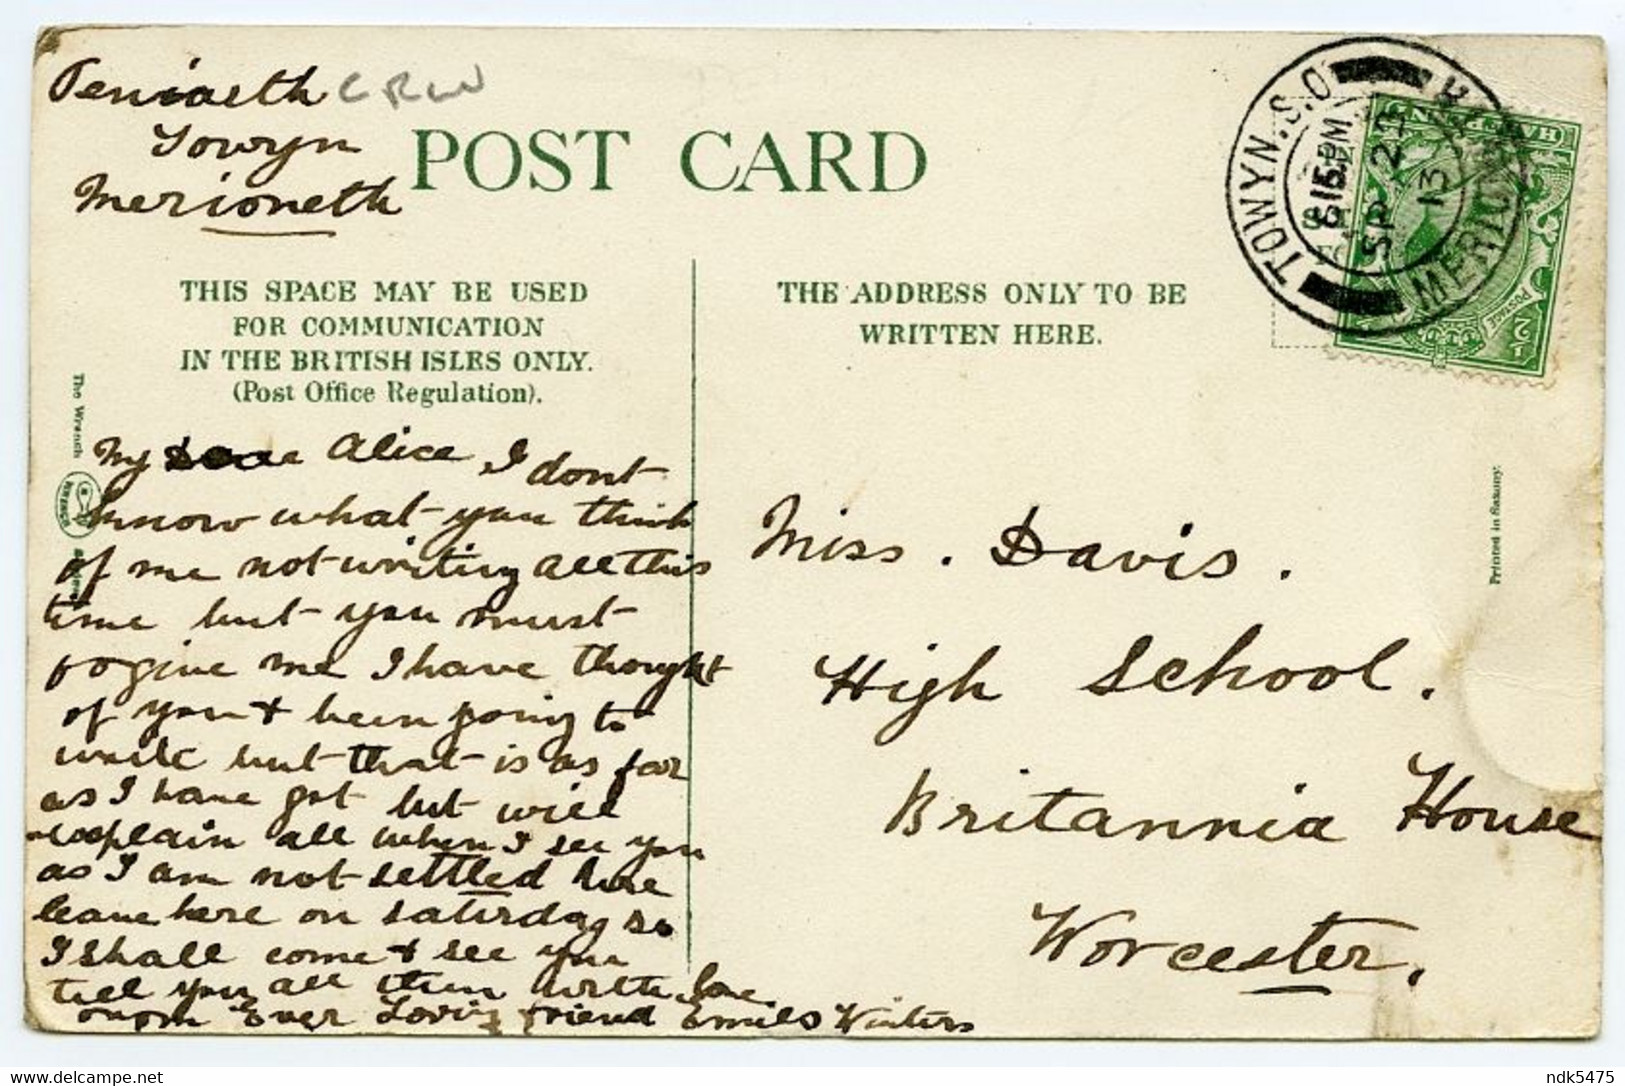 Peniaeth CRW
Towyn
Merioneth
POST CARD
TOWYN.S.O
MERIONETH
6 15 PM
SP 22
13
HALFPENNY
POSTAGE
THIS SPACE MAY BE USED
FOR COMMUNICATION
IN THE BRITISH ISLES ONLY.
(Post Office Regulation).
THE ADDRESS ONLY TO BE
WRITTEN HERE.
The Wrench
WRENCH
Series
Printed in Saxony.
My Alice, I dont
know what you think
of me not writing all this
time but you must
fogive me I have thought
of you & been going to
write but that is as far
as I have got but will
explain all when I see you
as I am not settled here
leave here on Saturday so
I shall come & see you
tell you all then with love
from Ever Loving friend Emils Winters
Miss. Davis.
High School.
Britannia House
Worcester.
ndk5475